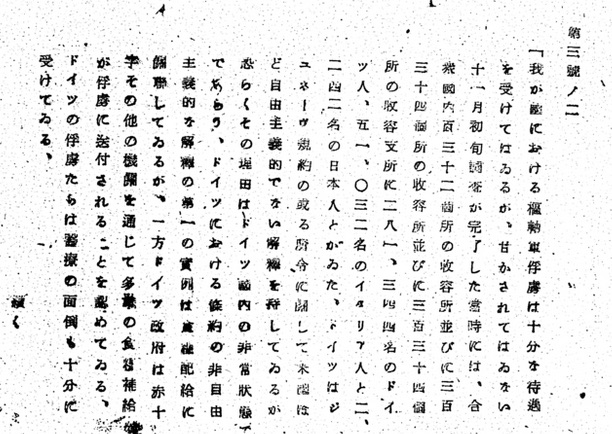 第三號ノ二
「我が國における樞軸軍俘虜は十分な待遇
を受けてはゐるが、甘かされてはゐない
十一月初旬調査が完了した當時には、合
衆國内百三十二箇所の收容所並びに三百
三十四個所の收容所並びに三百三十四個
所の收容支所に二八一、三四四名のドイ
ツ人、五一、〇三二名のイタリア人と二、
二四二名の日本人とがゐた、ドイツはジ
ユネーヴ規約の或る所令に關して米國ほ
ど自由主義的でない解釋を辞してゐるが
恐らくその理由はドイツ國内の非常狀態で
であらう、ドイツにおける條約の非自由
主義的な解釋の第一の實例は食糧配給に
關聯してゐるが、一方ドイツ政府は赤十
字その他の機關を通じて多數の食器補給
が俘虜に送付されることを認めてゐる、
ドイツの俘虜たちは醫療の面倒も十分に
受けてゐる、
續く